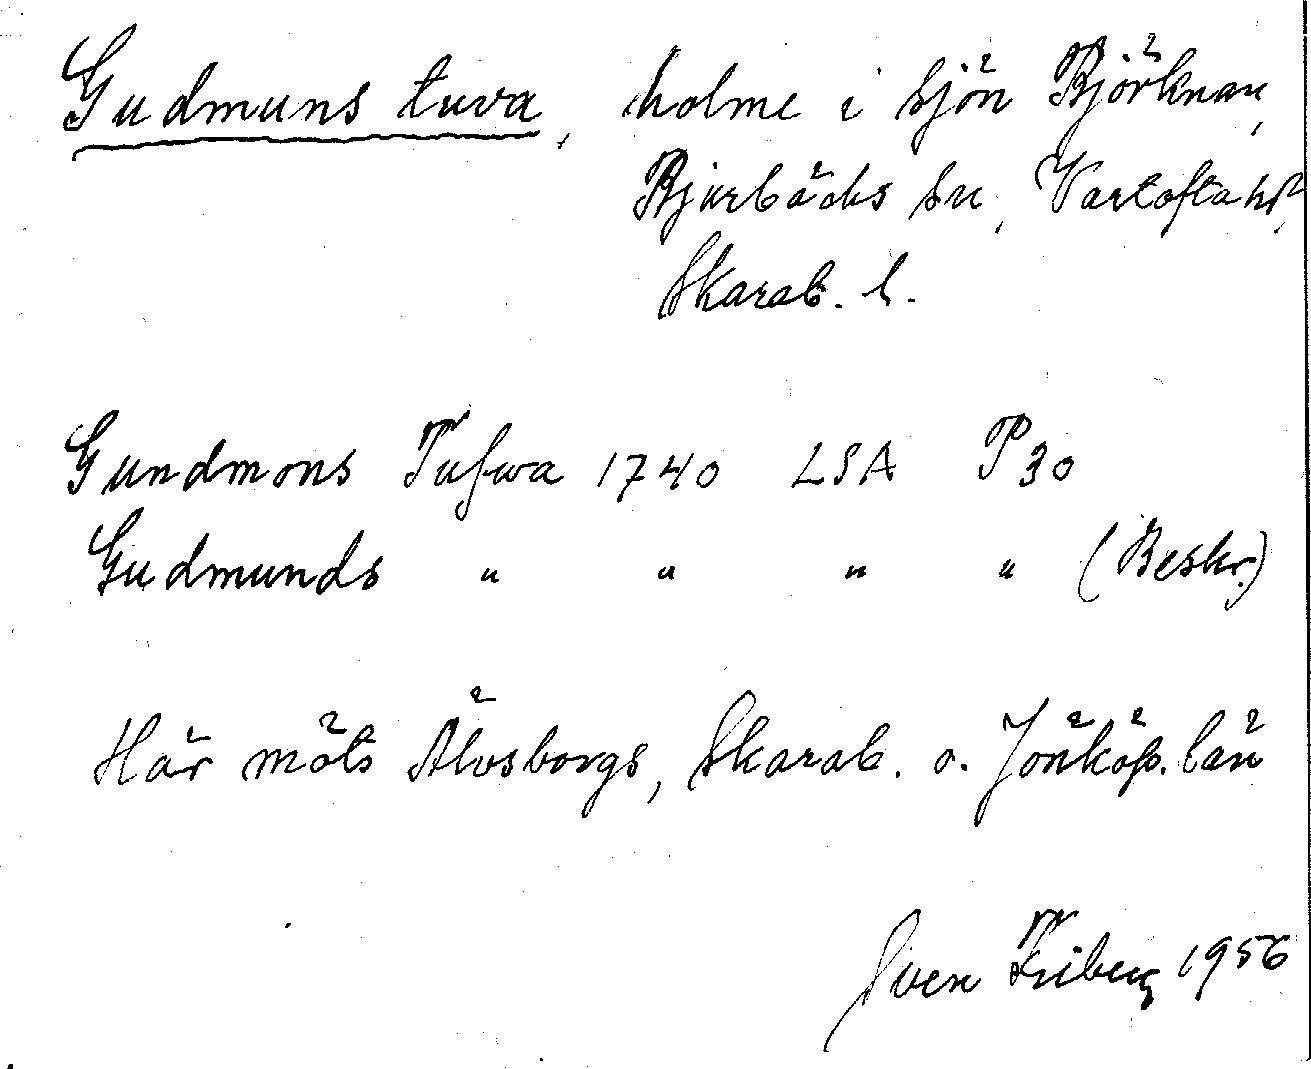 Gudmuns tuva, holme i sjön Björknan,
Bjurbäcks sn, Vartofta hd,
Skarab. l.
Gundmons Tufwa 1740 LSA P30
Gudmunds " " " " (Beskr.)
Här möts Älvsborgs, Skarab. o. Jönköp. län
Sven Friberg 1956